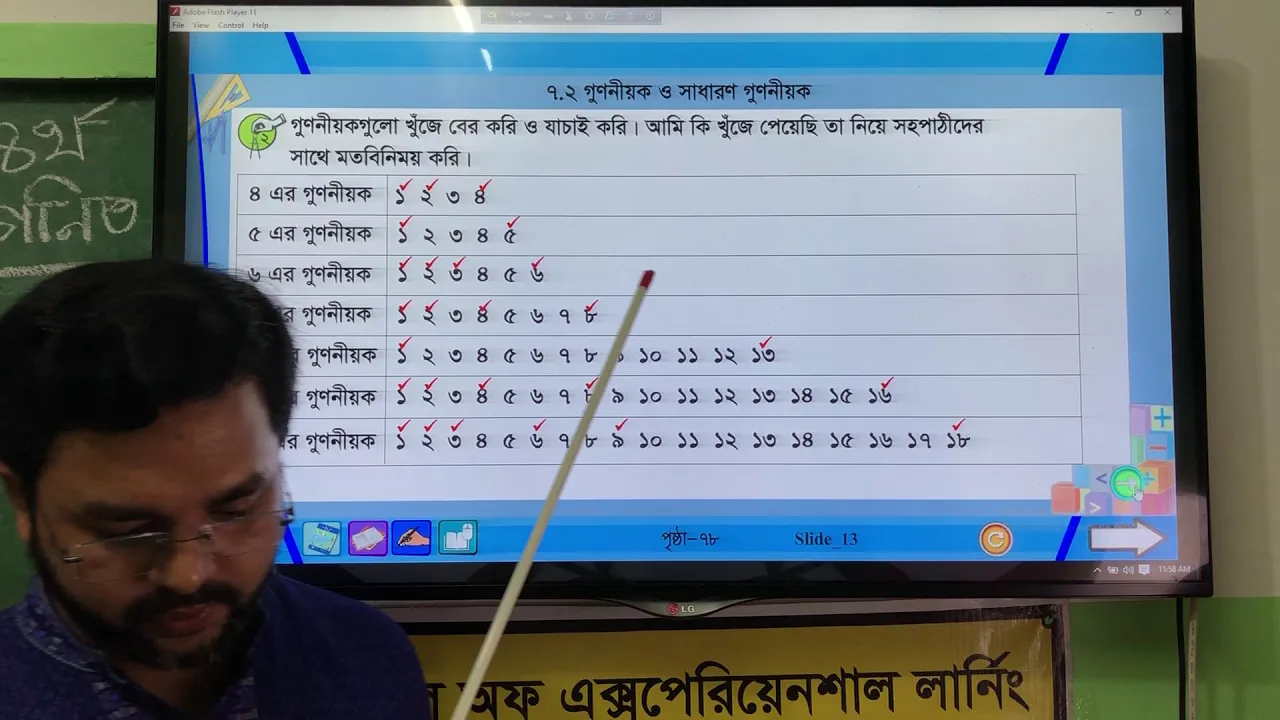 Adobe Flash Player 11
File View Control Help
৪র্থ
গনিত
৭.২ গুণনীয়ক ও সাধারণ গুণনীয়ক
২
গুণনীয়কগুলো খুঁজে বের করি ও যাচাই করি। আমি কি খুঁজে পেয়েছি তা নিয়ে সহপাঠীদের
সাথে মতবিনিময় করি।
৪ এর গুণনীয়ক ১ ২ ৩ ৪
৫ এর গুণনীয়ক ১ ২ ৩ ৪ ৫
৬ এর গুণনীয়ক ১ ২ ৩ ৪ ৫ ৬
গুণনীয়ক ১ ২ ৩ ৪ ৫ ৬ ৭ ৮
গুণনীয়ক ১ ২ ৩ ৪ ৫ ৬ ৭ ৮ ১০ ১১ ১২ ১৩
গুণনীয়ক ১ ২ ৩ ৪ ৫ ৬ ৭ ৮ ৯ ১০ ১১ ১২ ১৩ ১৪ ১৫ ১৬
গুণনীয়ক ১ ২ ৩ ৪ ৫ ৬ ৭ ৮ ৯ ১০ ১১ ১২ ১৩ ১৪ ১৫ ১৬ ১৭ ১৮
পৃষ্ঠা-৭৮ Slide_13
11:58 AM
LG
অফ এক্সপেরিয়েনশাল লার্নিং